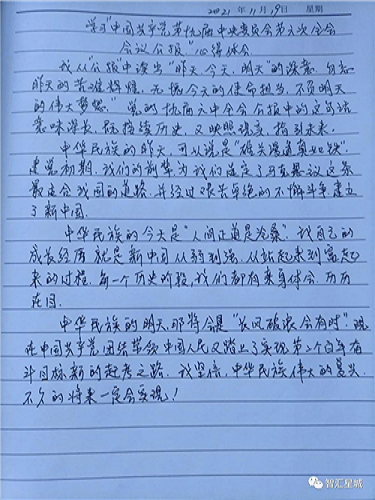 2021年11月19日 星期
学习"中国共产党第十九届中央委员会第六次全会
会议公报"心得体会
我从"公报"中读出"昨天、今天、明天"的深意,勿忘
昨天的苦难辉煌,无愧今天的使命担当,不负明天
的伟大梦想"党的十九届六中全会公报中的这句话
意味深长,既接续历史,又映照现实,指引未来。
中华民族的昨天,可以说是"雄关漫道真如铁".
建党初期,我们的前辈为我们选定了马克思主义这条
最适合我国的道路,并经过艰苦卓绝的不懈斗争建立
了新中国.
中华民族的今天是"人间正道是沧桑".我自己的
成长经历就是新中国从弱到强、从站起来到富起
来的过程.每一个历史阶段,我们都有亲身体会,历历
在目.
中华民族的明天,那将会是"长风破浪会有时".现
在中国共产党团结带领中国人民又踏上了实现第二个百年奋
斗目标新的赶考之路.我坚信,中华民族伟大的复兴
不久的将来一定会实现!
智汇星城